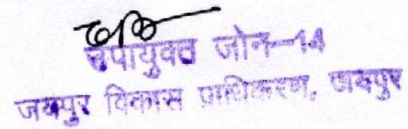 उपायुक्त जोन-14
जयपुर विकास प्राधिकरण, जयपुर